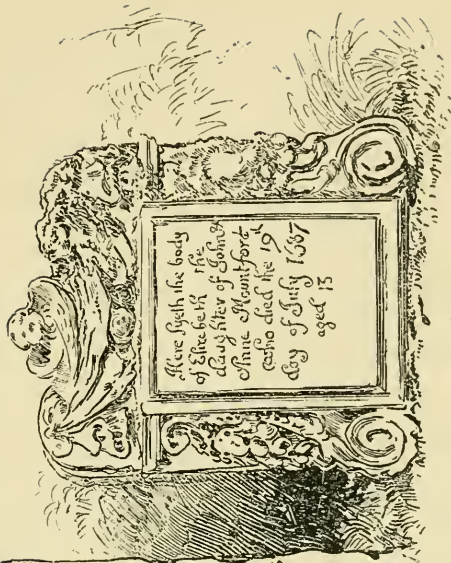 Here lyeth the body
of Elizebeth the
daughter of John &
Anne Mountfort
who died the 19th
day of July 1687
aged 13